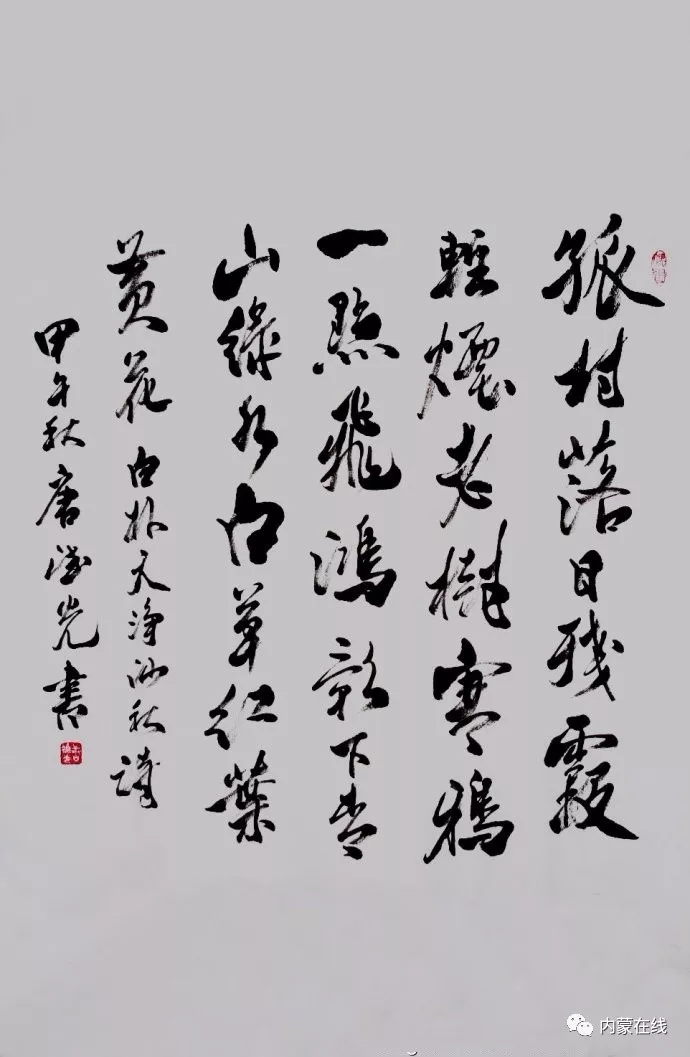 孤村落日残霞
輕煙老樹寒鴉
一點飛鴻影下青
山綠水白草红葉
黄花 白朴天净沙秋詩
甲午秋 唐 光書
内蒙在线